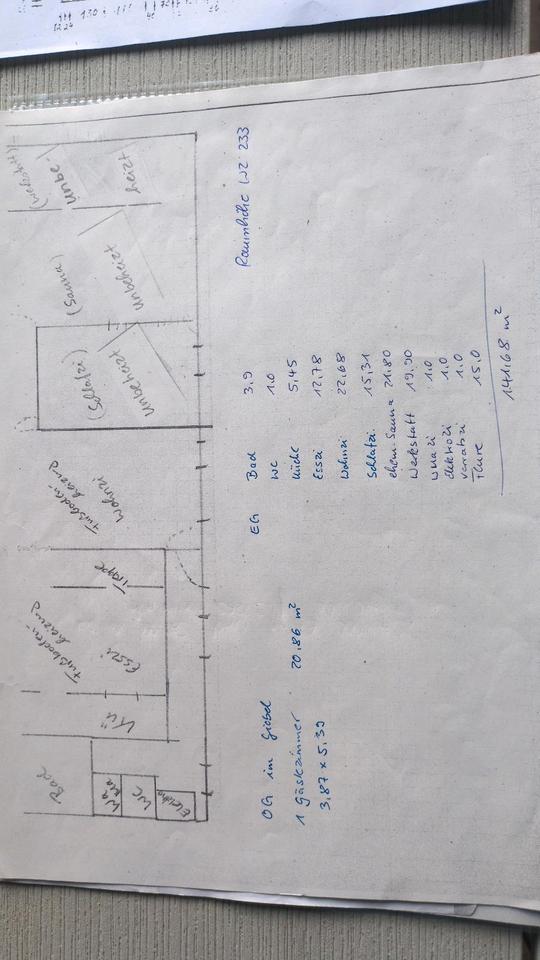 Bad
WC
Elektro
Kü
Esszi
Fußboden
heizung
Treppe
Wohnzi
Fußboden
heizung
(Schlafzi)
Unbeheizt
(Sauna)
Unbeheizt
(Werkstatt)
Unbe-
heizt
Raumhöhe WZ 233
EG Bad 3,9
WC 1.0
Küche 5,45
Esszi 12,78
Wohnzi 22,68
Schlafzi. 15,31
ehem. Sauna 21.80
Werkstatt 19.90
1.0
elektrozi 1.0
vorratzi 1.0
Flure 15.0
141,68 m²
OG im Giebel
1 Gästezimmer 20,86 m²
3,87 x 5,39